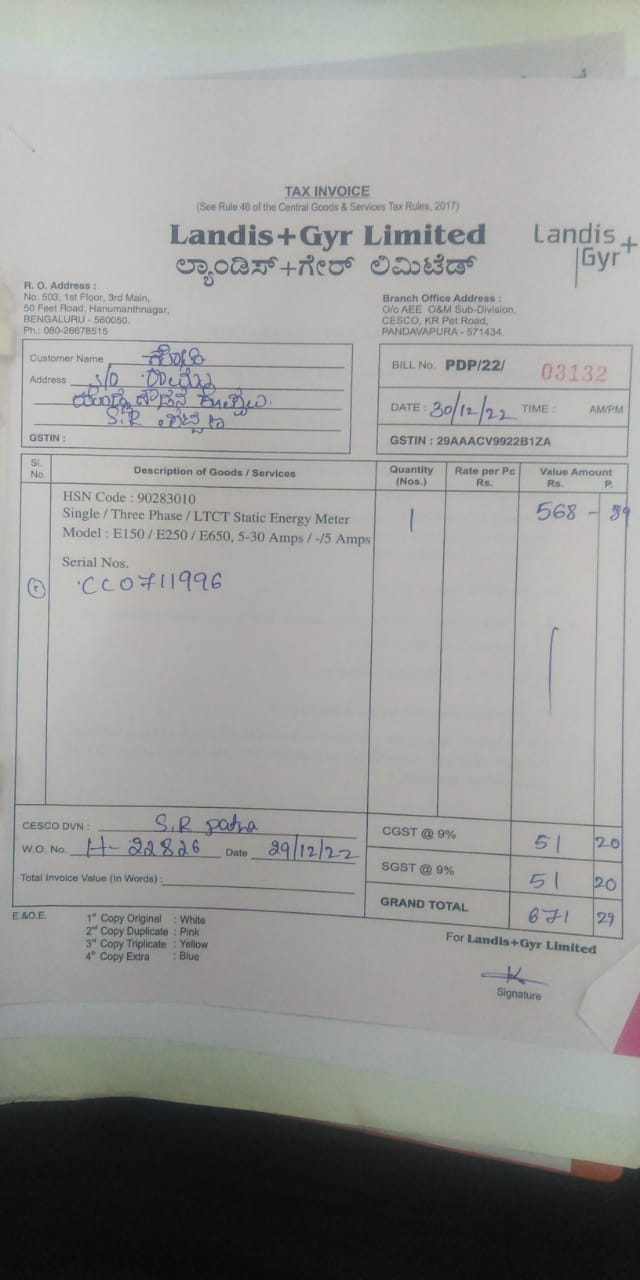 TAX INVOICE
(See Rule 46 of the Central Goods & Services Tax Rules, 2017)
Landis+Gyr Limited
ಲ್ಯಾಂಡಿಸ್+ಗೇರ್ ಲಿಮಿಟೆಡ್
Landis
Gyr+
R. O. Address :
No. 503, 1st Floor, 3rd Main,
50 Feet Road, Hanumanthnagar,
BENGALURU - 560050.
Ph.: 080-26678515
Branch Office Address :
O/o AEE O&M Sub-Division,
CESCO, KR Pet Road,
PANDAVAPURA - 571434.
Customer Name
Address S/O
S.R
GSTIN :
BILL No. PDP/22/ 03132
DATE : 30/12/22 TIME : AM/PM
GSTIN : 29AAACV9922B1ZA
Sl. No. Description of Goods / Services Quantity (Nos.) Rate per Pc Rs. Value Amount Rs. P.
HSN Code : 90283010
Single / Three Phase / LTCT Static Energy Meter 1 568 - 89
Model : E150 / E250 / E650, 5-30 Amps / -/5 Amps
Serial Nos.
CC0711996
CESCO DVN : S.R patna
W.O. No. H-22826 Date 29/12/22
Total Invoice Value (In Words) :
CGST @ 9% 51 20
SGST @ 9% 51 20
GRAND TOTAL 671 29
E.&O.E.
1st Copy Original : White
2nd Copy Duplicate : Pink
3rd Copy Triplicate : Yellow
4th Copy Extra : Blue
For Landis+Gyr Limited
Signature